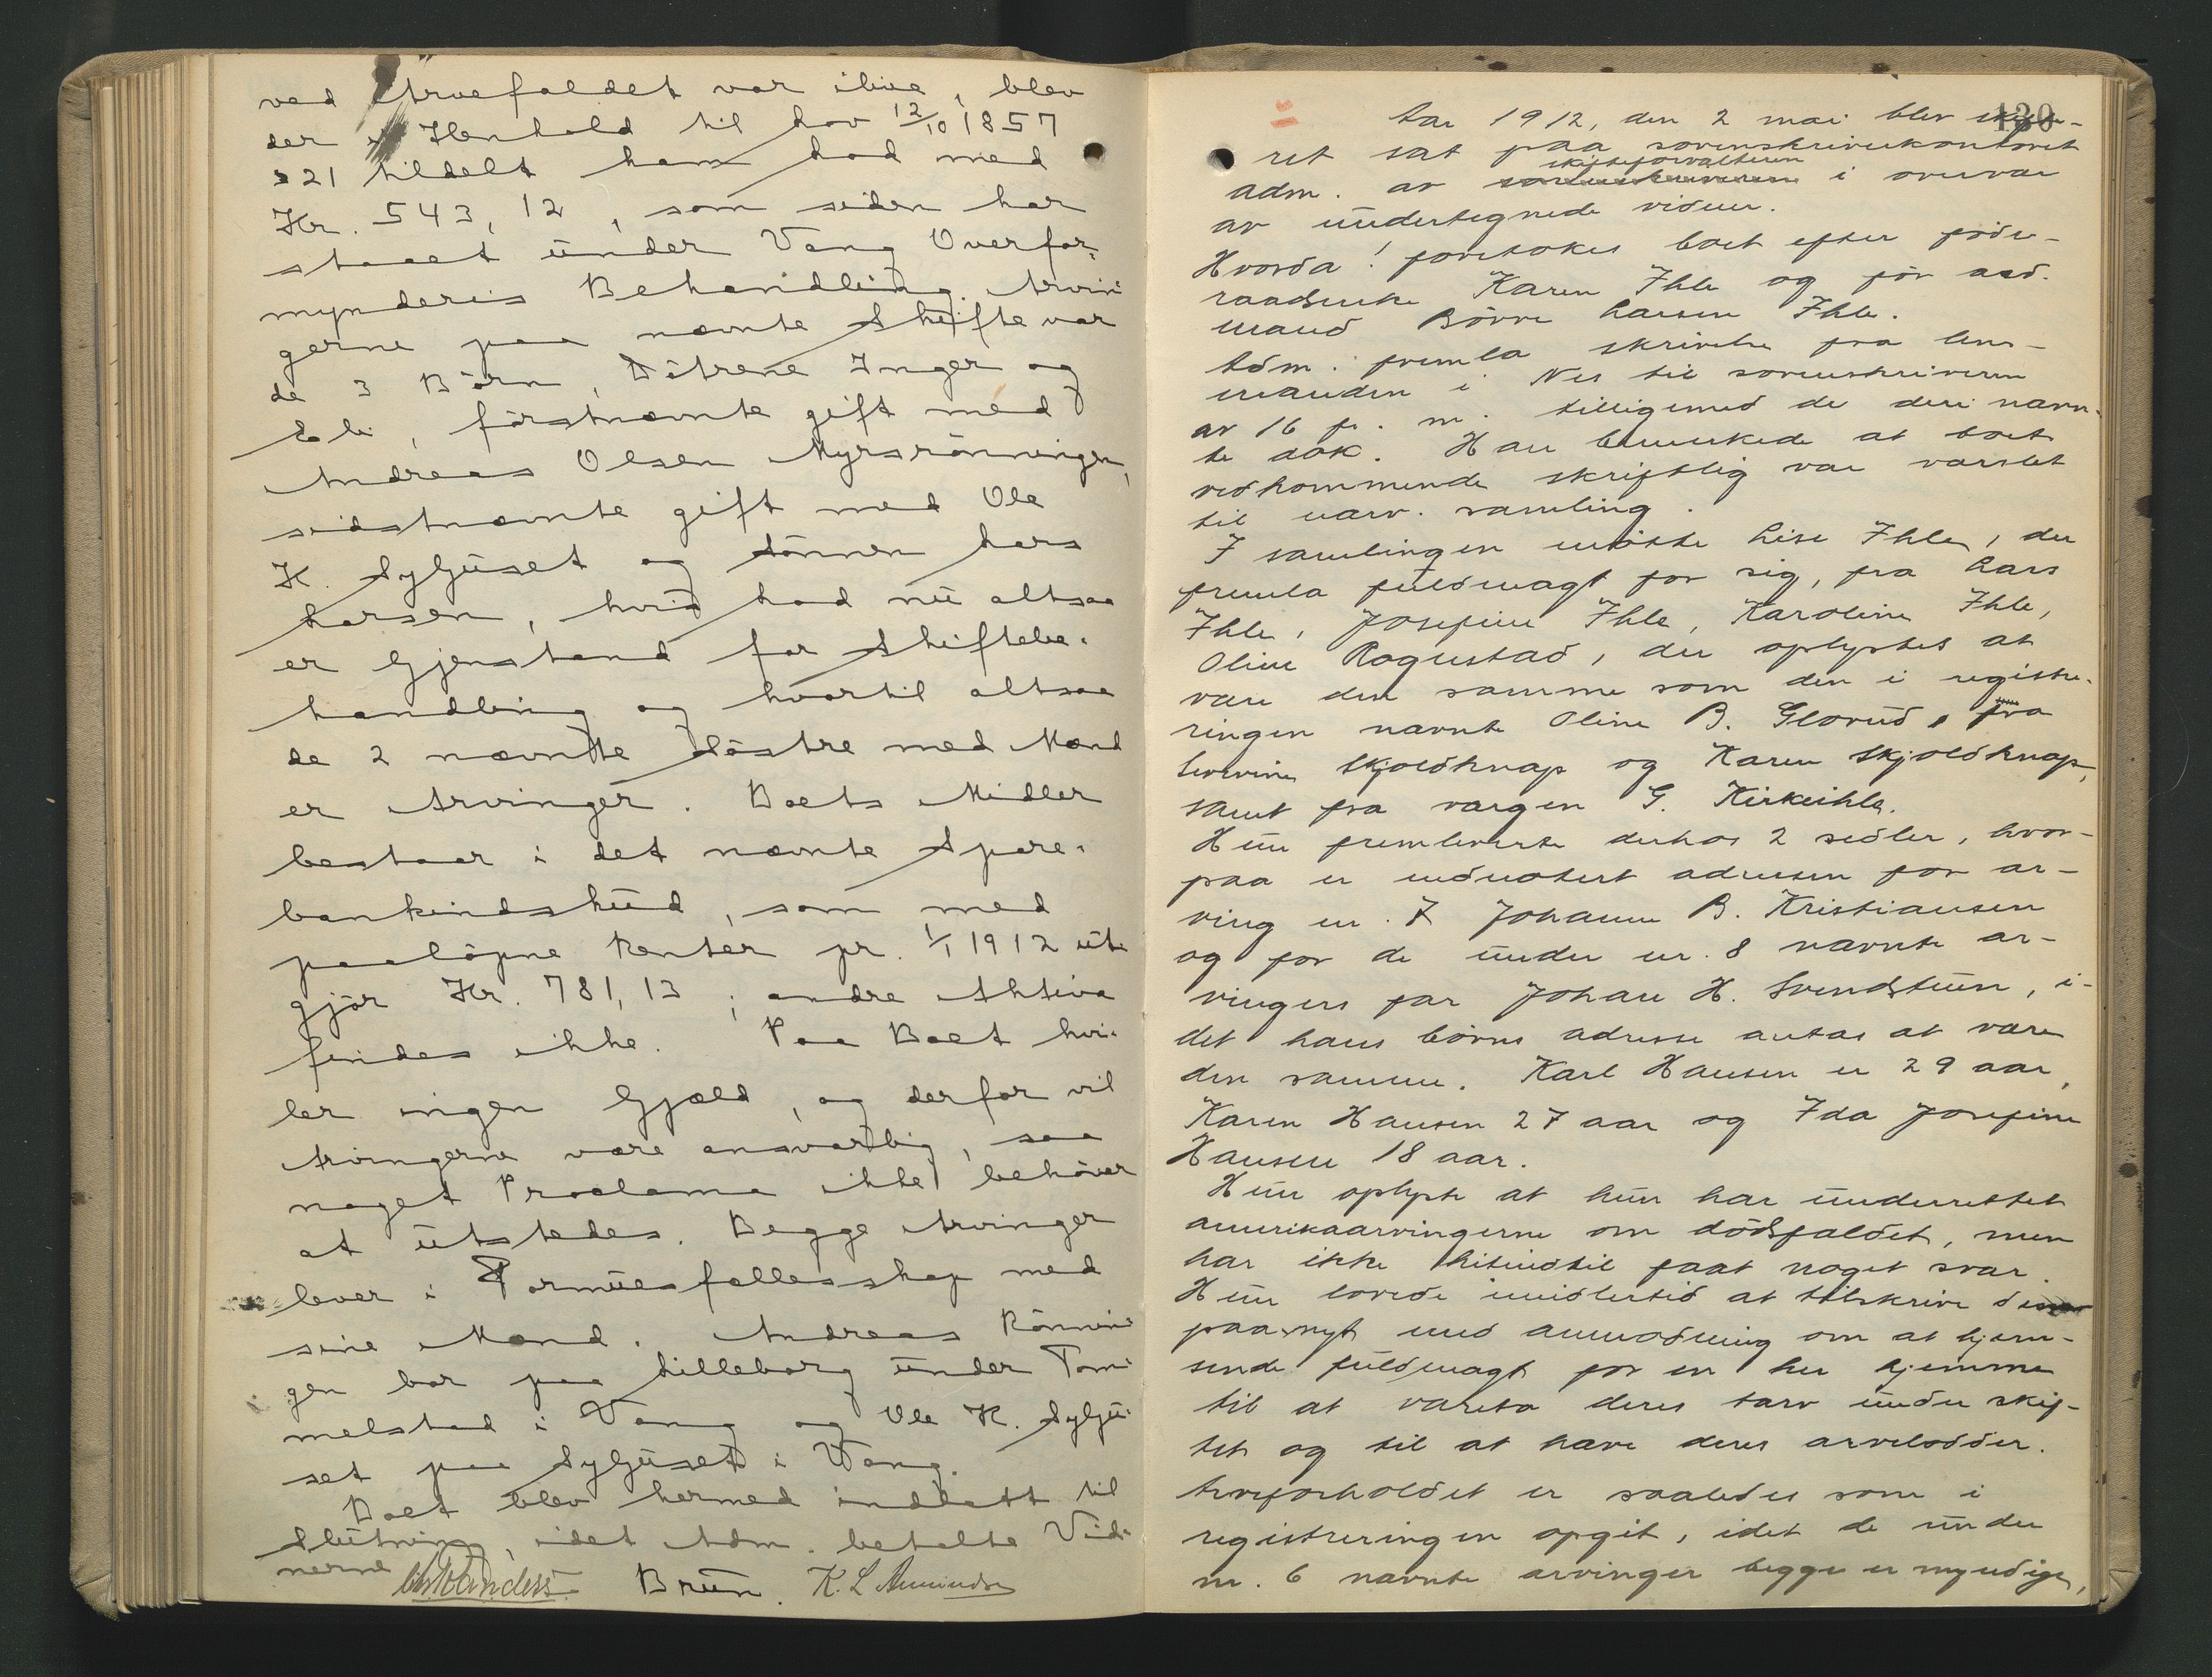 ved Arvefaldet var ilive, blev
der i Henhold til Lov 12/10 1857
§ 21 tildelt ham Lod med
Kr. 543,12, som siden har
staaet under Vang Overfor-
mynderis Behandling. Arvin-
gerne paa nævnte Skifte var
de 3 Börn, Dötrene Inger og
Eli, förstnævnte gift med
Andreas Olsen Myrsrönningen,
sidstnævnte gift med Ole
K. Sylju̅set og Sönnen Lars
Larsen, hvis Lod nu̅ altsaa
er Gjenstand for Skiftebe-
handling og hvortil altsaa
de 2 nævnte Söstre med Mænd
er Arvinger. Boets Midler
bestaar i det nævnte Spare-
bankindsku̅d, som med
paalöpne Renter pr. 1/1 1912 u̅t-
gjör Kr. 781,13; andre Aktiva
findes ikke. Paa Boet hvi-
ler ingen Gjæld, og derfor vil
Arvingerne være ansvarlig, saa
noget Proclama ikke behöver
at u̅tstedes. Begge Arvinger
lever i Formu̅esfællesskap med
sine Mænd. Andreas Rönnin-
gen bor paa Lilleborg u̅nder Tom-
melstad i Vang og Ole K. Sylju̅-
set paa Sylju̅set i Vang.
Boet blev hermed indlatt til
Slu̅tning, idet Adm. betalte Vid-
nerne
Bru̅n. K. L. Amundsen
130
Aar 1912, den 2 mai blev skifte-
ret sat paa sorenskriverkontoret
skifteforvalteren
adm. av sorenskriveren i overvær
av u̅ndertegnede vidner.
Hvorda! foretokes boet efter föde-
raadsenke Karen Ihle og för avd.
mand Börre Larsen Ihle.
Adm. fremla skrivelse fra lens-
manden i Nes til sorenskriveren
av 16 f. m. tilligemed de deri nævn-
te dok. Han bemerkede at boets
vedkommende skriftlig var varslet
til nærv. samling.
I samlingen mötte Lise Ihle, der
fremla fu̅ldmagt for sig, fra Lars
Ihle, Josefine Ihle, Karoline Ihle,
Oline Rognstad, der oplystes at
være den samme som den i registre-
ringen nævnte Oline B. Glorud, fra
Severine Skjoldknap og Karen Skjoldknap,
samt fra værgen G. Kirkeihle.
Hu̅n fremleverte derhos 2 sedler, hvor-
paa er indnotert adressen for ar-
ving nr. 7 Johanne B. Kristiansen
og for de u̅nder nr. 8 nævnte ar-
vingers far Johan H. Svendstu̅en, i-
det hans börns adresse antas at være
den samme. Karl Hansen er 29 aar,
Karen Hansen 27 aar og Ida Josefine
Hansen 18 aar.
Hu̅n oplyste at hu̅n har u̅nderrettet
amerikaarvingerne om dödsfaldet, men
har ikke hitindtil faat noget svar.
Hu̅n lovede imidlertid at tilskrive dem
paanyt med anmodning om at hjem-
sende fu̅ldmagt for en her hjemme
til at vareta deres tarv u̅nder skif-
tet og til at hæve deres arvelodder.
Arveforholdet er saaledes som i
registreringen opgit, idet de u̅nder
nr. 6 nævnte arvinger begge er myndige,